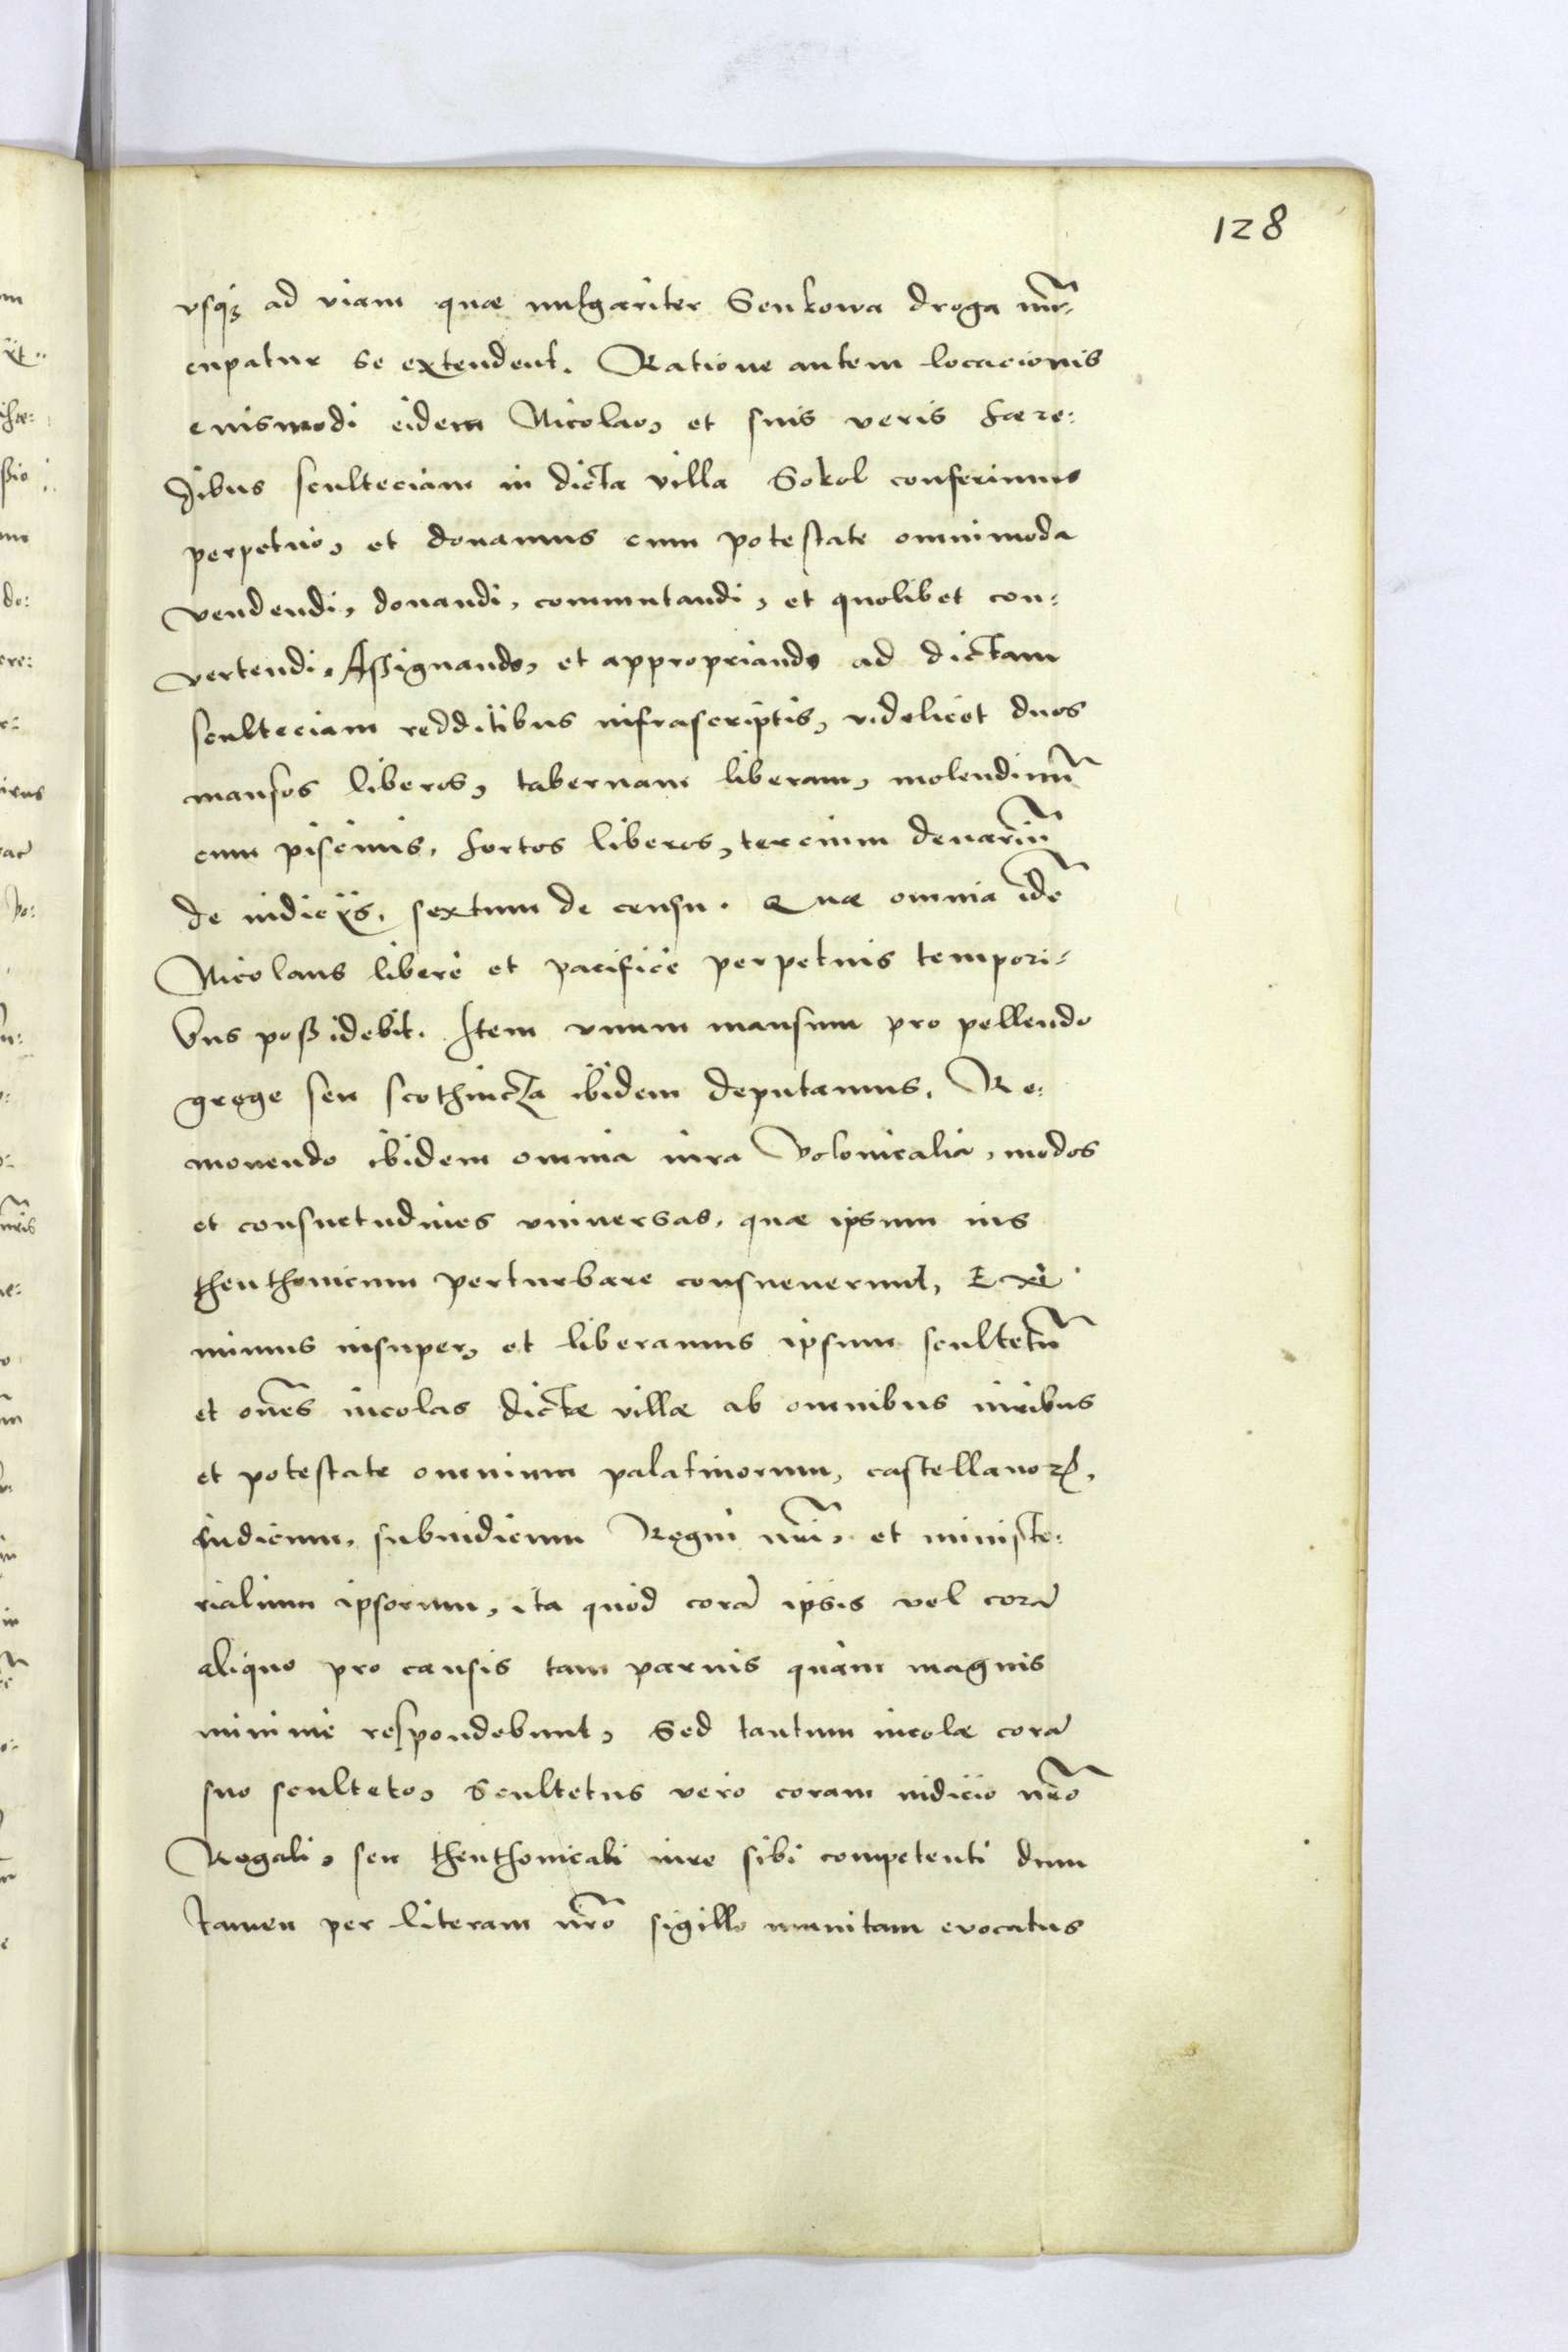 128
vsq₃ ad viam quæ uulgariter Senkowa droga nũr-
cupatur se extendent. Ratione autem locacionis
euismodi eidem Nicolao, et suis veris hære:
dibus sculteciam in dicta villa Sokol conferimus
perpetuo, et donamus cum potestate omnimoda
vendendi, donandi, commutandi, et quolibet con:
vertendi. Assignando, et appropriando ad dictam
sculteciam redditibus infrascriptis, videlicet duos
mansos liberos, tabernam liberam, molendinũ
cum piscinis, hortos liberos, tercium denariũ
de iudicijs, sextum de censu. Quæ omnia idẽ
Nicolaus liberè et pacificè perpetuis tempori-
bus possidebit. Item vnum mansum pro pellendo
grege seu scothnicza ibidem deputamus. Re:
mouendo ibidem omnia iura Polonicalia, modos
et consuetudines vniuersas, quæ ipsum ius
theuthonicum perturbare consueuerunt, Exi
mimus insuper, et liberamus ipsum scultetũ
et oẽs incolas dictæ villæ ab omnibus iuribus
et potestate omnium palatinorum, castellanoꝝ,
iudicum, subiudicum Regni nr̃i, et ministe:
rialium ipsorum, ita quòd corã ipsis vel corã
aliquo pro causis tam paruis quàm magnis
minimè respondebunt, Sed tantum incolæ corã
suo sculteto, Scultetus verò coram iudicio nr̃o
Regali, seu theuthonicali iure sibi competenti dum
tamen per literam nr̃o sigillo munitam evocatus